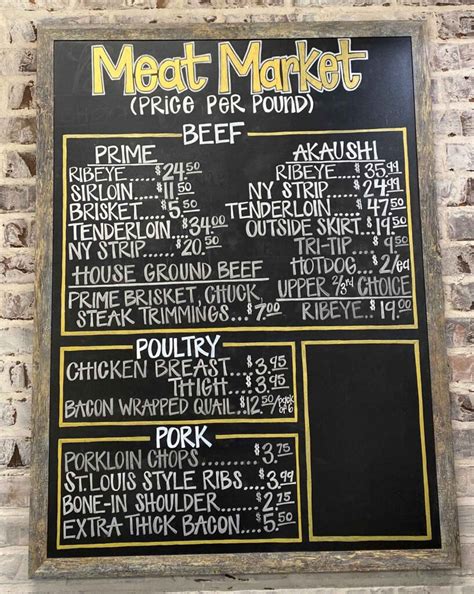 Meat Market
(PRICE PER POUND)
BEEF
PRIME
RIBEYE.....$24.50
SIRLOIN....$11.50
BRISKET....$5.50
TENDERLOIN..$34.00
NY STRIP......$20.50
HOUSE GROUND BEEF
PRIME BRISKET, CHUCK,
STEAK TRIMMINGS...$7.00
AKAUSHI
RIBEYE...$35.99
NY STRIP...$24.99
TENDERLOIN...$47.50
OUTSIDE SKIRT.$19.50
TRI-TIP...$9.50
HOTDOG...$2/ea
UPPER 2/3rd CHOICE
RIBEYE..$19.00
POULTRY
CHICKEN BREAST...$3.95
THIGH...$3.95
BACON WRAPPED QUAIL..$12.50/pack of 6
PORK
PORKLOIN CHOPS.........$3.75
ST. LOUIS STYLE RIBS..$3.99
BONE-IN SHOULDER....$2.75
EXTRA THICK BACON...$5.50